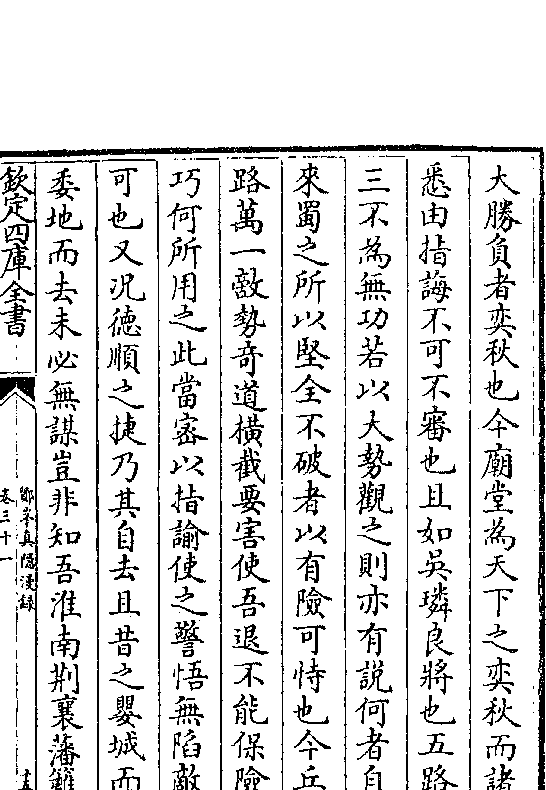 大勝負者奕秋也今廟堂為天下之奕秋而諸
悉由指誨不可不審也且如吳璘良將也五路
三不為無功若以大勢觀之則亦有說何者自
來蜀之所以堅全不破者以有險可恃也今兵
路萬一敵勢奇道橫截要害使吾退不能保險
巧何所用之此當密以指諭使之警悟無陷敵
可也又況德順之捷乃其自去且昔之嬰城而
委地而去未必無謀豈非知吾淮南荆襄藩籬
欽定四庫全書
鄮峯真隱漫録
卷三十一